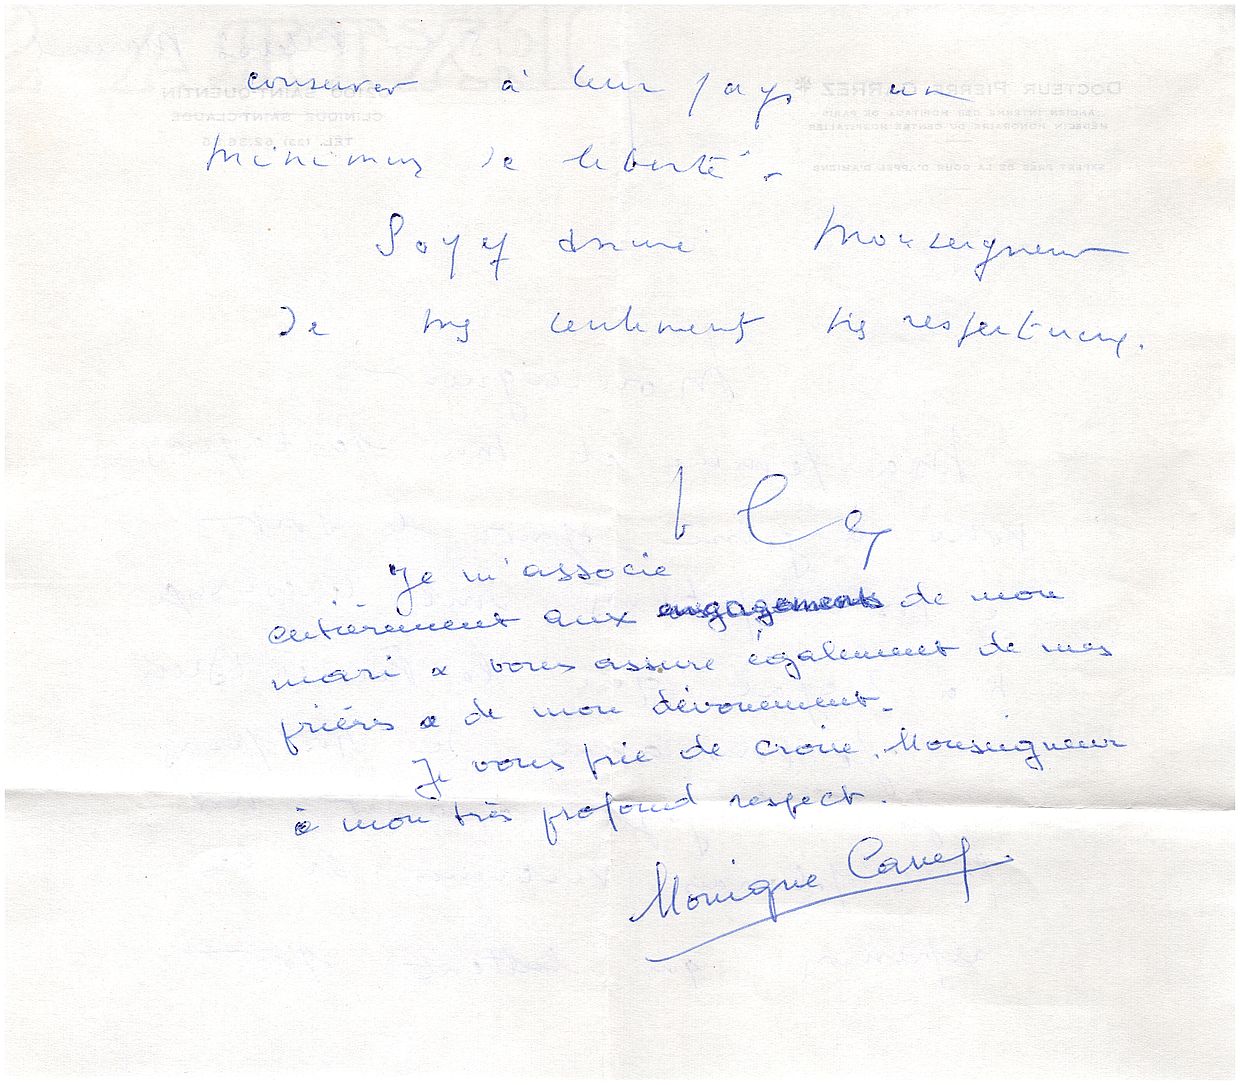 conserver à leur pays un
minimum de liberté.
Soyez assuré Monseigneur
de mes sentiments très respectueux.
Je m'associe
entièrement aux engagements de mon
mari & vous assure également de mes
prières & de mon dévouement.
Je vous prie de croire, Monseigneur
à mon très profond respect.
Monique Carrez